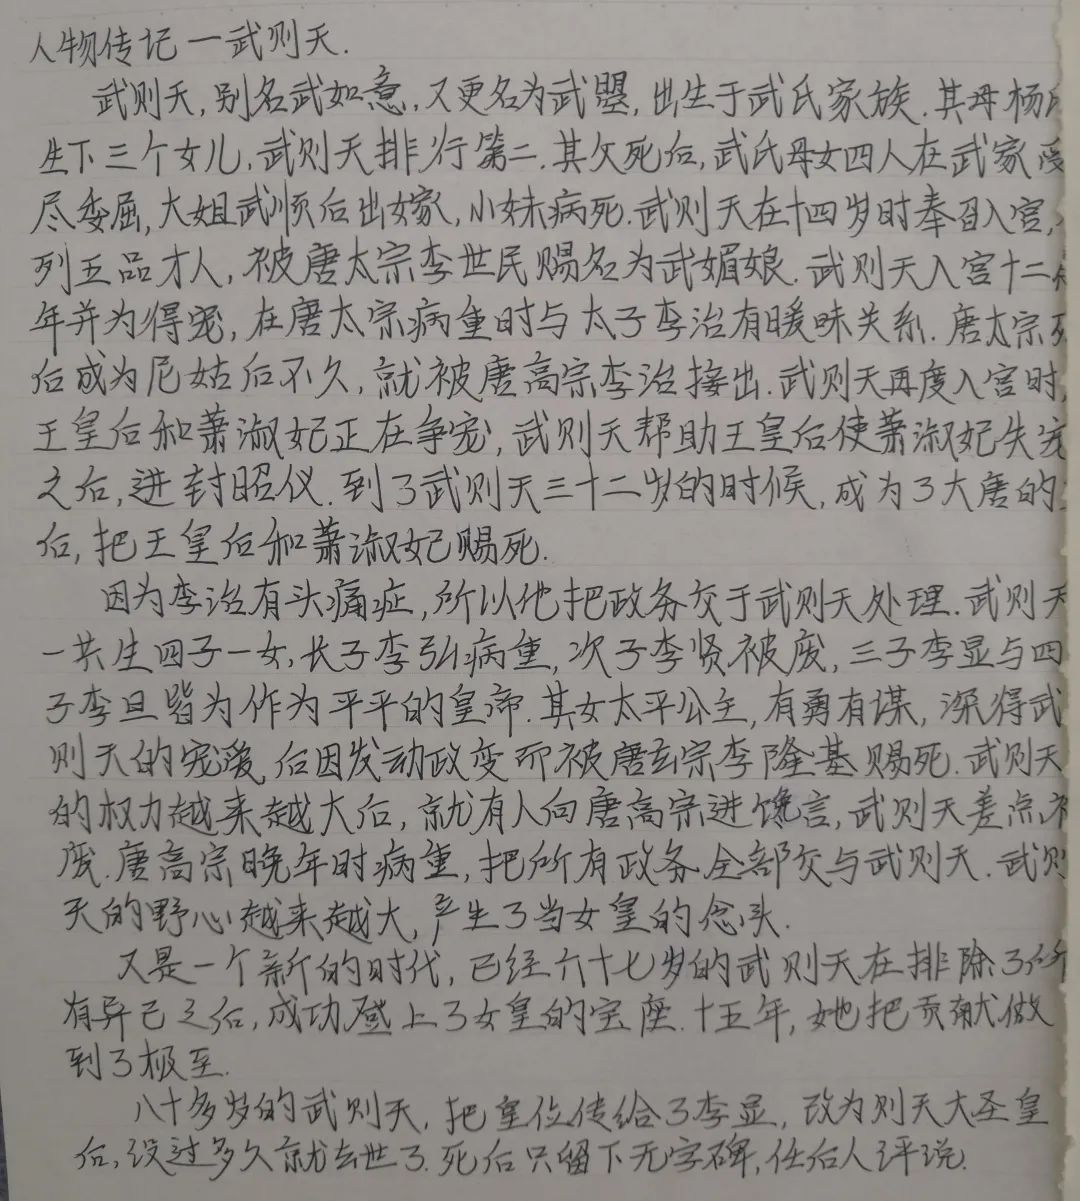 人物传记一武则天.
武则天,别名武如意,又更名为武曌,出生于武氏家族.其母杨氏
生下三个女儿,武则天排行第二.其父死后,武氏母女四人在武家受
尽委屈,大姐武顺后出嫁,小妹病死.武则天在十四岁时奉召入宫,
列五品才人,被唐太宗李世民赐名为武媚娘.武则天入宫十二
年并为得宠,在唐太宗病重时与太子李治有暧昧关系.唐太宗死
后成为尼姑后不久,就被唐高宗李治接出.武则天再度入宫时,
王皇后和萧淑妃正在争宠,武则天帮助王皇后使萧淑妃失宠
之后,进封昭仪.到了武则天三十二岁的时候,成为了大唐的
后,把王皇后和萧淑妃赐死.
因为李治有头痛症,所以他把政务交于武则天处理.武则天
一共生四子一女,长子李弘病重,次子李贤被废,三子李显与四
子李旦皆为作为平平的皇帝.其女太平公主,有勇有谋,深得武
则天的宠爱,后因发动政变而被唐玄宗李隆基赐死.武则天
的权力越来越大后,就有人向唐高宗进馋言,武则天差点被
废.唐高宗晚年时病重,把所有政务全部交与武则天.武则
天的野心越来越大,产生了当女皇的念头.
又是一个新的时代,已经六十七岁的武则天在排除了所
有异己之后,成功登上了女皇的宝座.十五年,她把贡献做
到了极至.
八十多岁的武则天,把皇位传给了李显,改为则天大圣皇
后,没过多久就去世了.死后只留下无字碑,任后人评说.